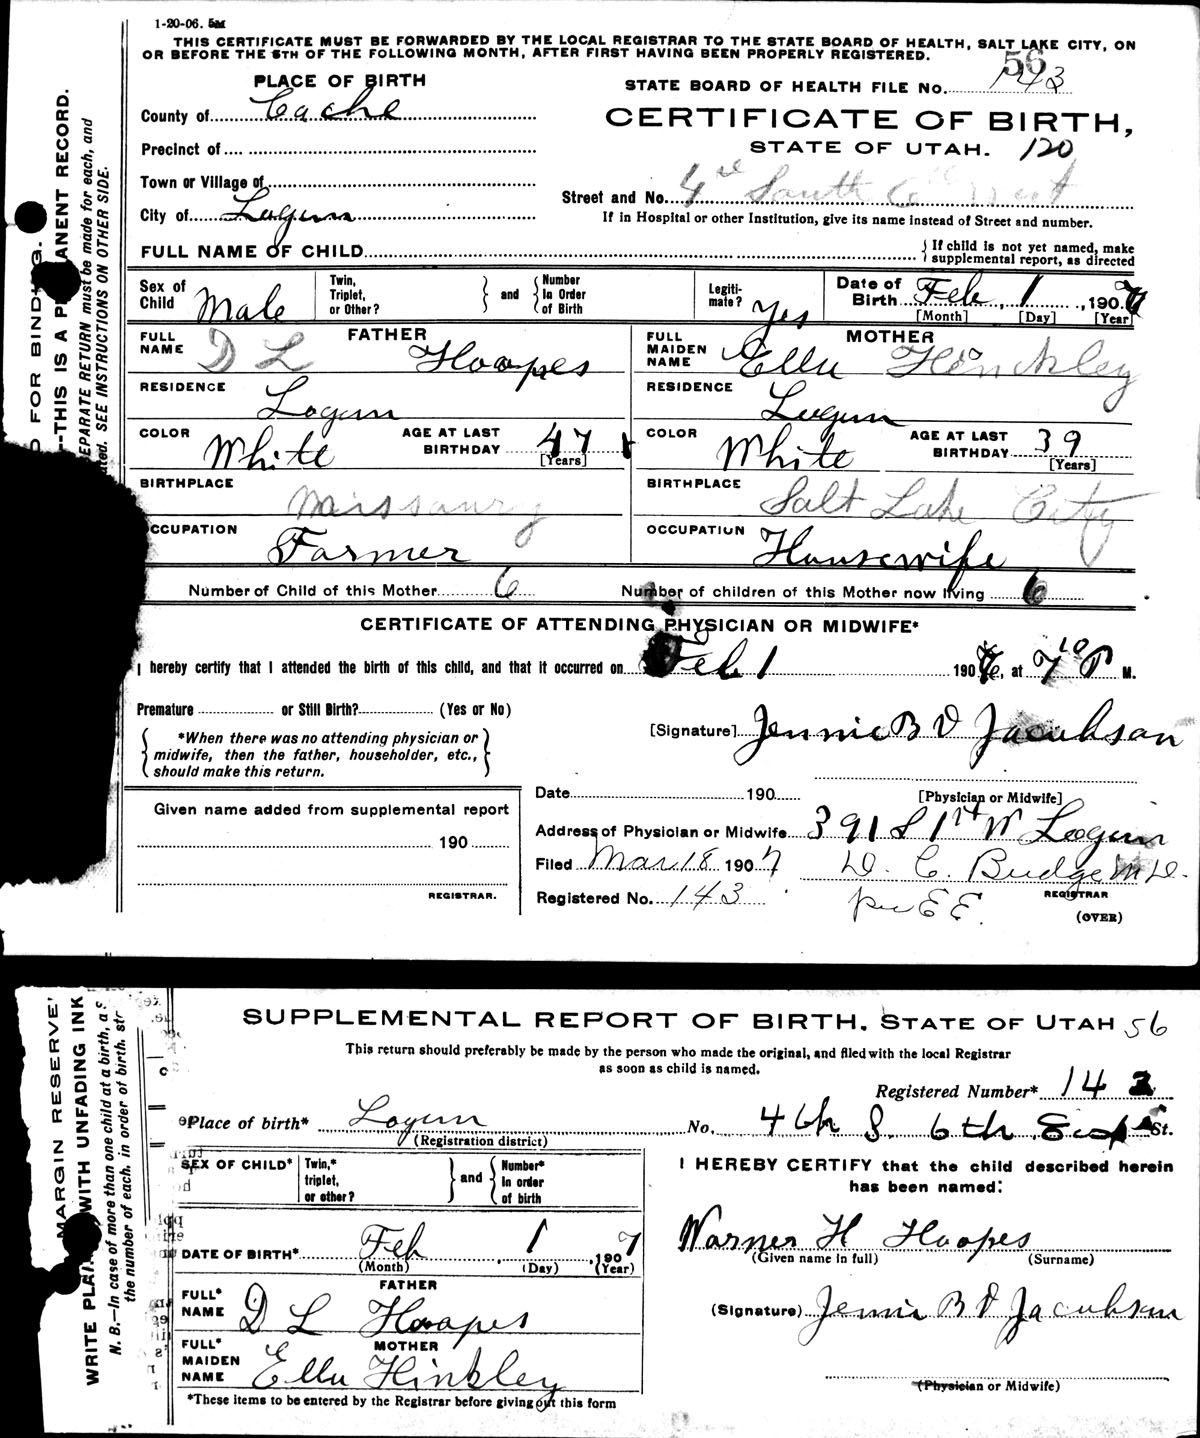 1-20-06. 5M
THIS CERTIFICATE MUST BE FORWARDED BY THE LOCAL REGISTRAR TO THE STATE BOARD OF HEALTH, SALT LAKE CITY, ON
OR BEFORE THE 5TH OF THE FOLLOWING MONTH, AFTER FIRST HAVING BEEN PROPERLY REGISTERED.
56
PLACE OF BIRTH
STATE BOARD OF HEALTH FILE No. 143
County of Cache
CERTIFICATE OF BIRTH,
Precinct of
STATE OF UTAH. 120
Town or Village of
Street and No. 4 South 6 West
City of Logan
If in Hospital or other Institution, give its name instead of Street and number.
FULL NAME OF CHILD
{If child is not yet named, make
supplemental report, as directed
Sex of Child Male
Twin, Triplet, or Other? } and { Number In Order of Birth
Legiti-mate? Yes
Date of Birth Feb 1, 1907
[Month] [Day] [Year]
FATHER
FULL NAME D L Hoopes
MOTHER
FULL MAIDEN NAME Ella Hinckley
RESIDENCE Logan
RESIDENCE Logan
COLOR White AGE AT LAST BIRTHDAY 47 [Years]
COLOR White AGE AT LAST BIRTHDAY 39 [Years]
BIRTHPLACE Missoury
BIRTHPLACE Salt Lake City
OCCUPATION Farmer
OCCUPATION Housewife
Number of Child of this Mother 6 Number of children of this Mother now living 6
CERTIFICATE OF ATTENDING PHYSICIAN OR MIDWIFE*
I hereby certify that I attended the birth of this child, and that it occurred on Feb 1 190 , at 7 10 P M.
Premature or Still Birth? (Yes or No)
[Signature] Jennie B D Jacobson
{ *When there was no attending physician or
midwife, then the father, householder, etc.,
should make this return. }
Date 190 [Physician or Midwife]
Given name added from supplemental report
190
REGISTRAR.
Address of Physician or Midwife 391 S 1st W Logan
Filed Mar 18 1907 D. C. Budge M.D.
Registered No. 143 per E E. REGISTRAR
(OVER)
D FOR BINDING.
—THIS IS A PERMANENT RECORD.
SEPARATE RETURN must be made for each, and
SEE INSTRUCTIONS ON OTHER SIDE.
SUPPLEMENTAL REPORT OF BIRTH. STATE OF UTAH 56
This return should preferably be made by the person who made the original, and filed with the local Registrar
as soon as child is named.
Registered Number* 143
Place of birth* Logan No. 4th S. 6th St.
(Registration district)
SEX OF CHILD* Twin,* triplet, or other? } and { Number* In order of birth
I HEREBY CERTIFY that the child described herein
has been named:
DATE OF BIRTH* Feb 1, 1907
(Month) (Day) (Year)
Warner H Hoopes
(Given name in full) (Surname)
FATHER
FULL* NAME D L Hoopes
(Signature) Jennie B D Jacobson
MOTHER
FULL* MAIDEN NAME Ella Hinkley
(Physician or Midwife)
*These items to be entered by the Registrar before giving out this form
MARGIN RESERVE
WRITE PLAINLY WITH UNFADING INK
N. B.—In case of more than one child at a birth, a
the number of each, in order of birth, st